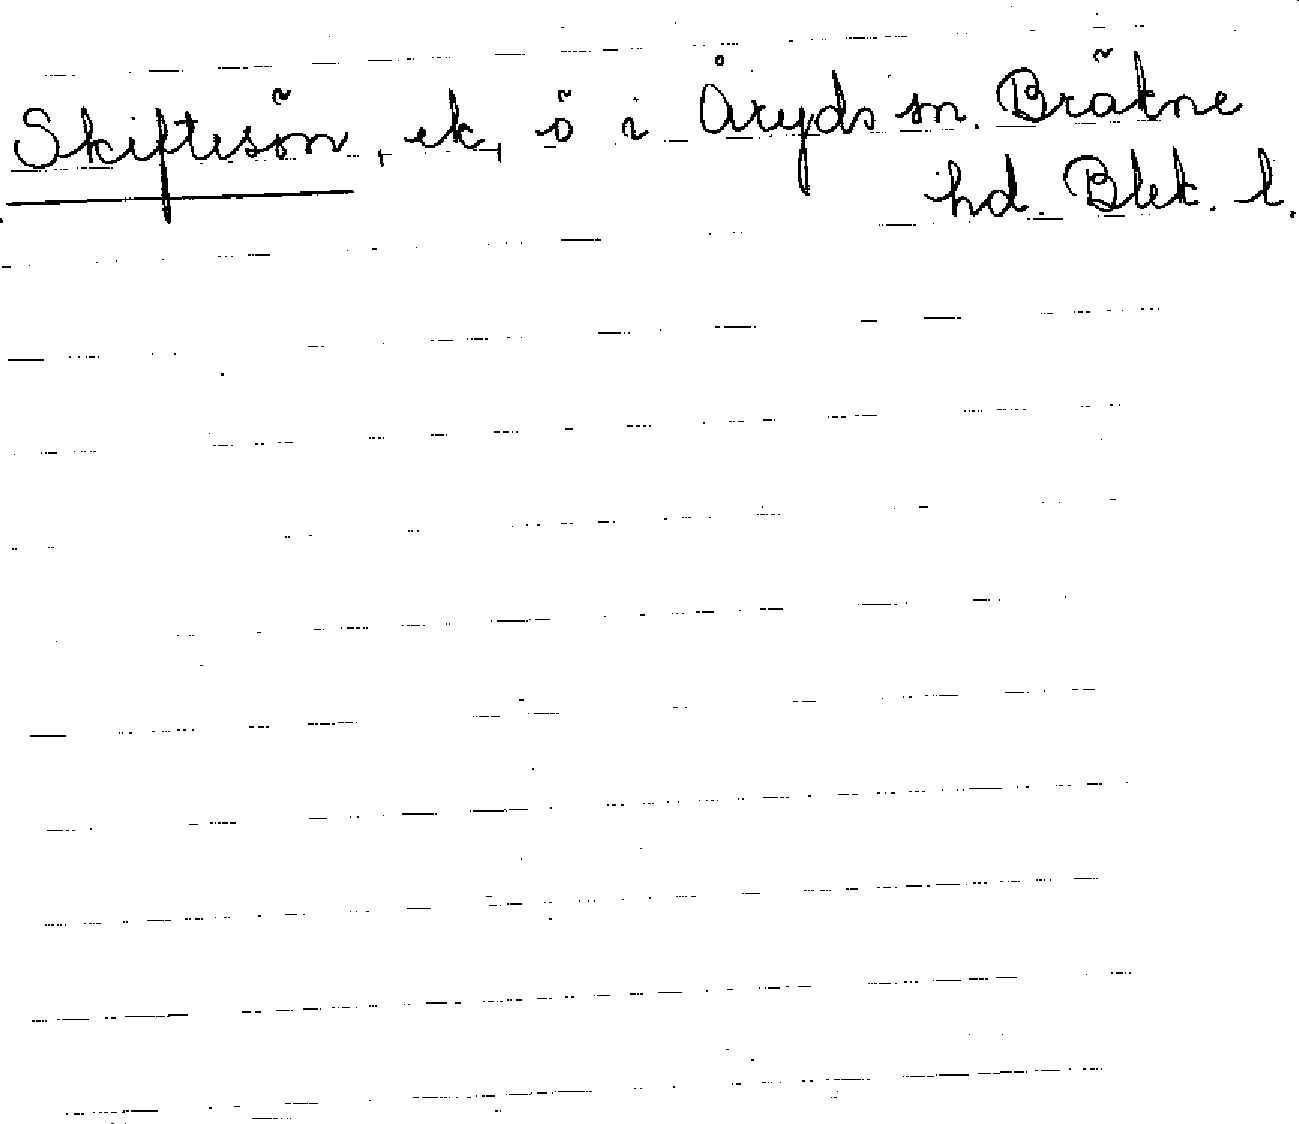 Skiftesön, ek, ö i Åryds sn. Bräkne
hd. Blek. l.